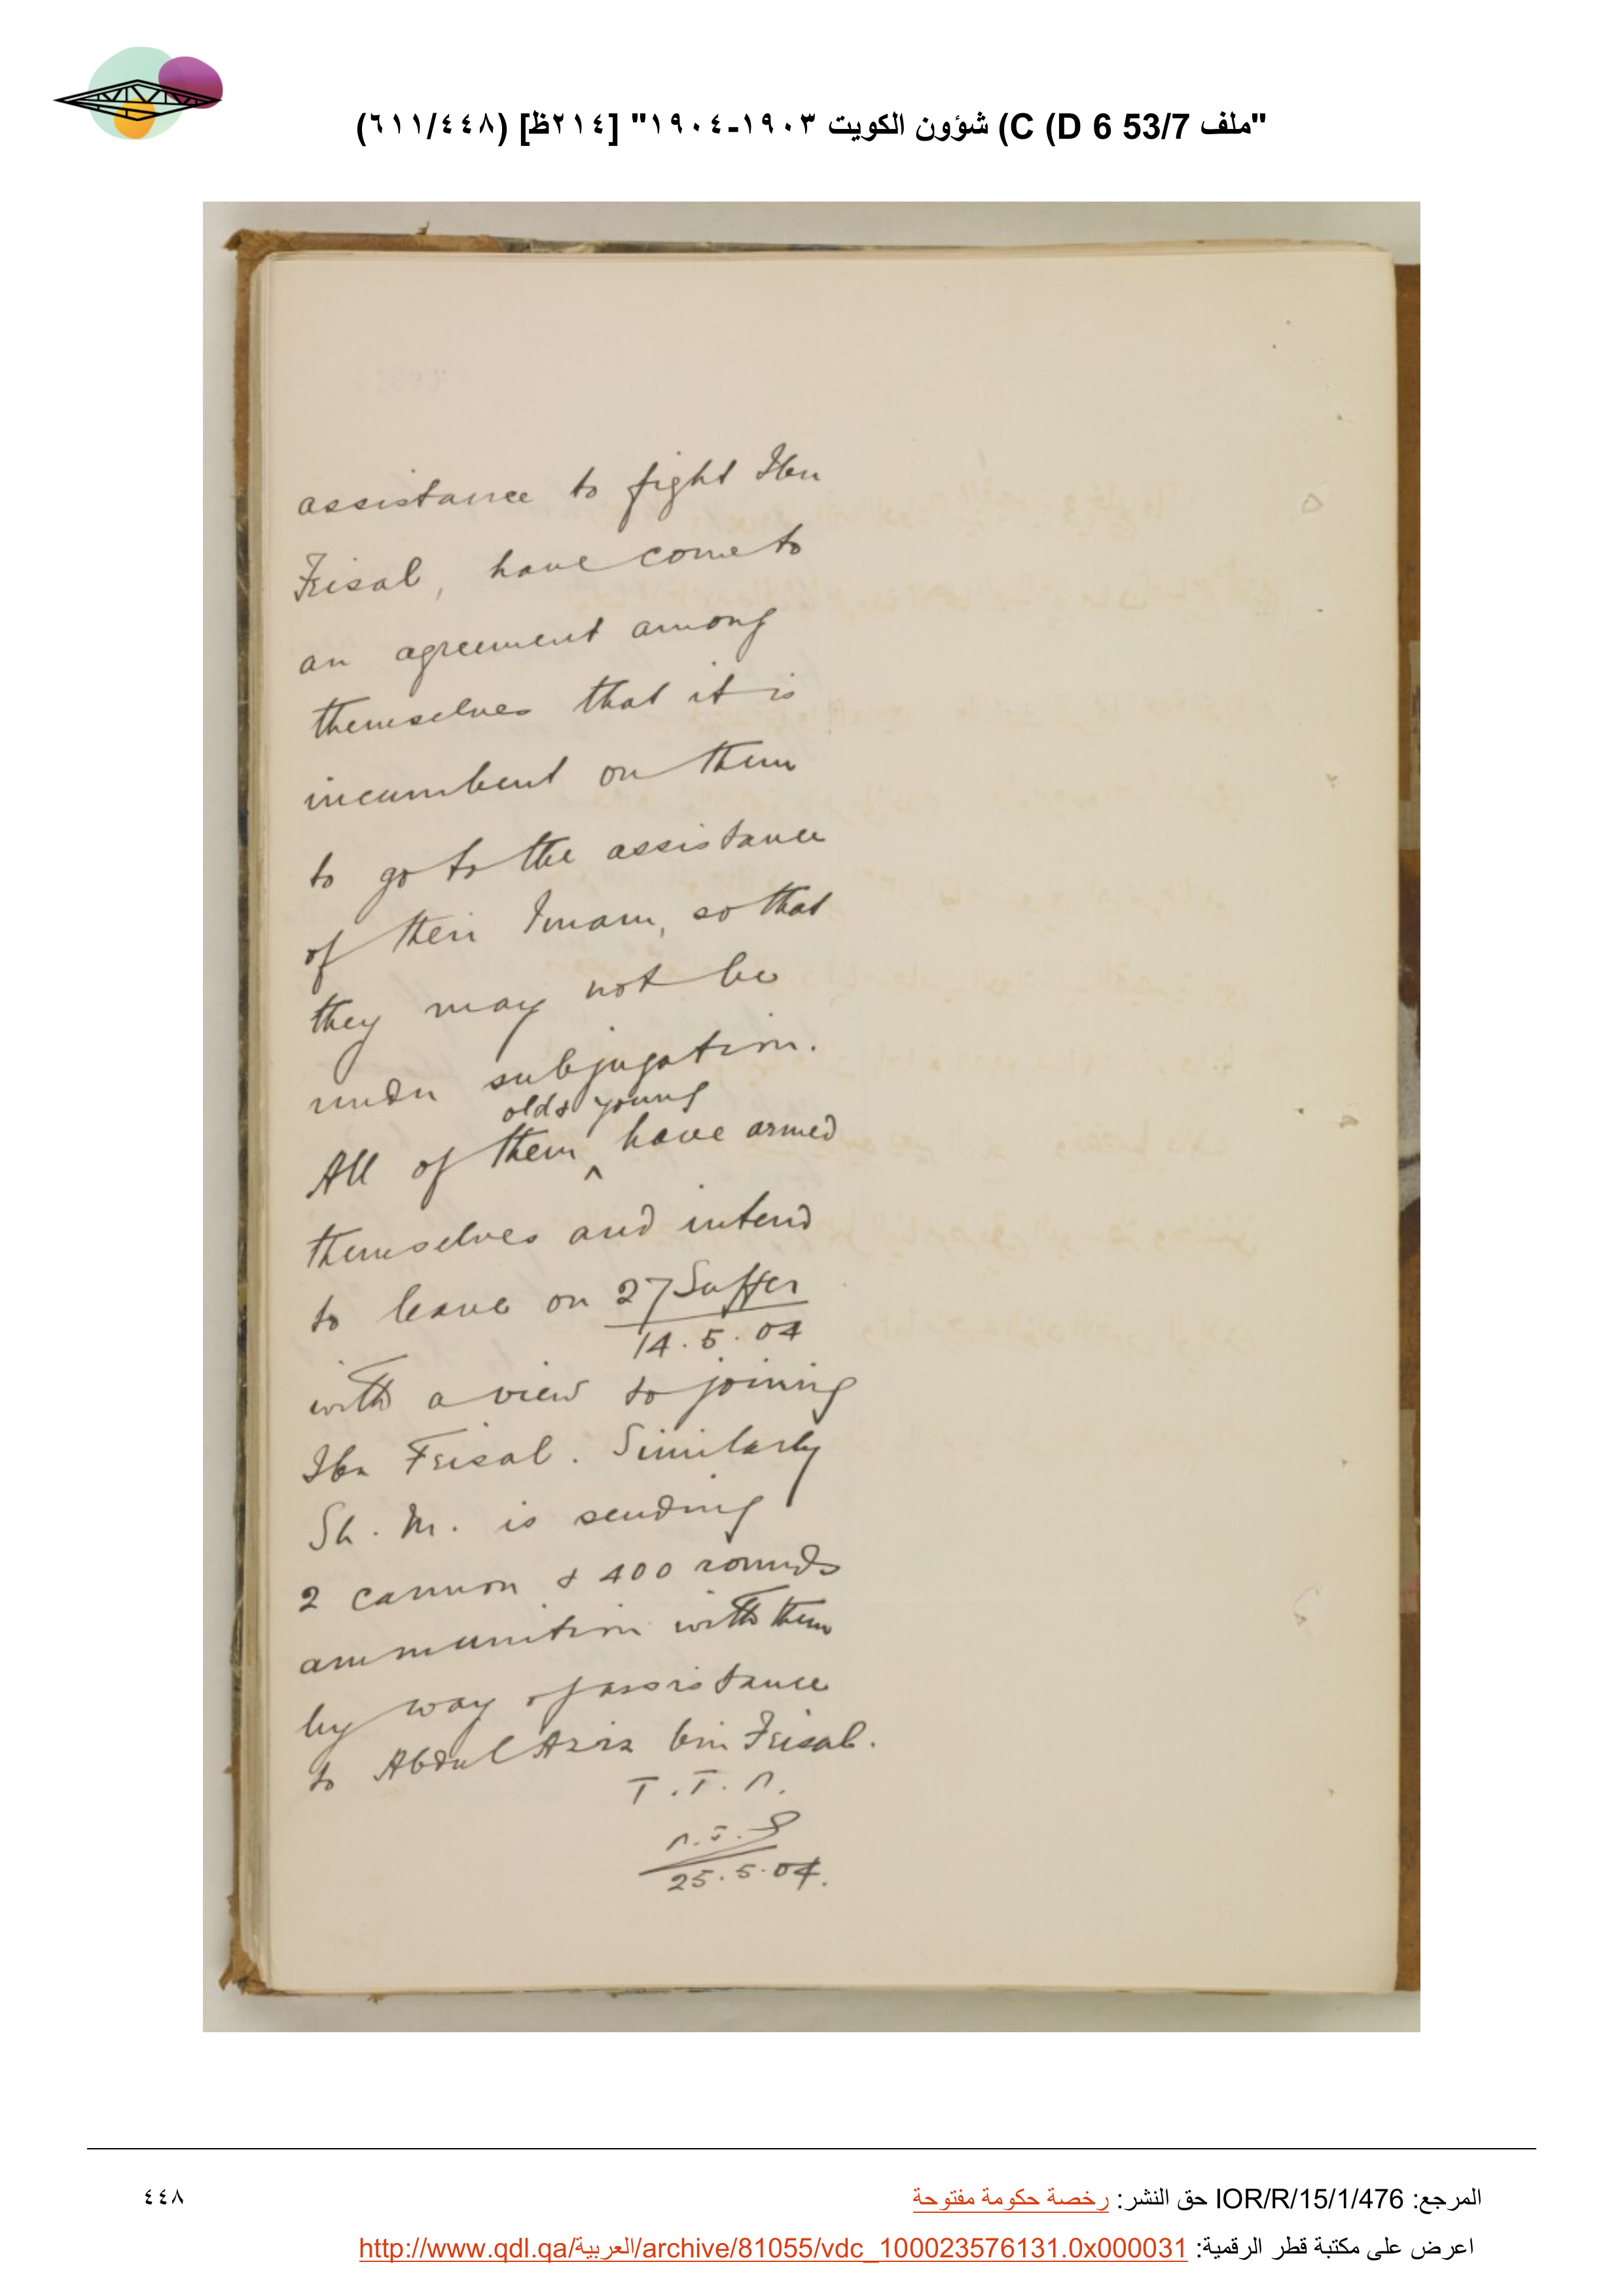 "ملف 53/7 6 C (D) شؤون الكويت ١٩٠٣-١٩٠٤" [٢١٤ظ] (٦١١/٤٤٨)
assistance to fight Ibn
Feisal, have come to
an agreement among
themselves that it is
incumbent on them
to go to the assistance
of their Imam, so that
they may not be
under subjugation.
old & young
All of them ^ have armed
themselves and intend
to leave on 27 Suffer
14.5.04
with a view to joining
Ibn Feisal. Similarly
Sh. M. is sending
2 cannon & 400 rounds
ammunition with them
by way of assistance
to Abdul Aziz bin Feisal.
25.5.04.
المرجع: IOR/R/15/1/476 حق النشر: رخصة حكومة مفتوحة
٤٤٨
اعرض على مكتبة قطر الرقمية: http://www.qdl.qa/العربية/archive/81055/vdc_100023576131.0x000031